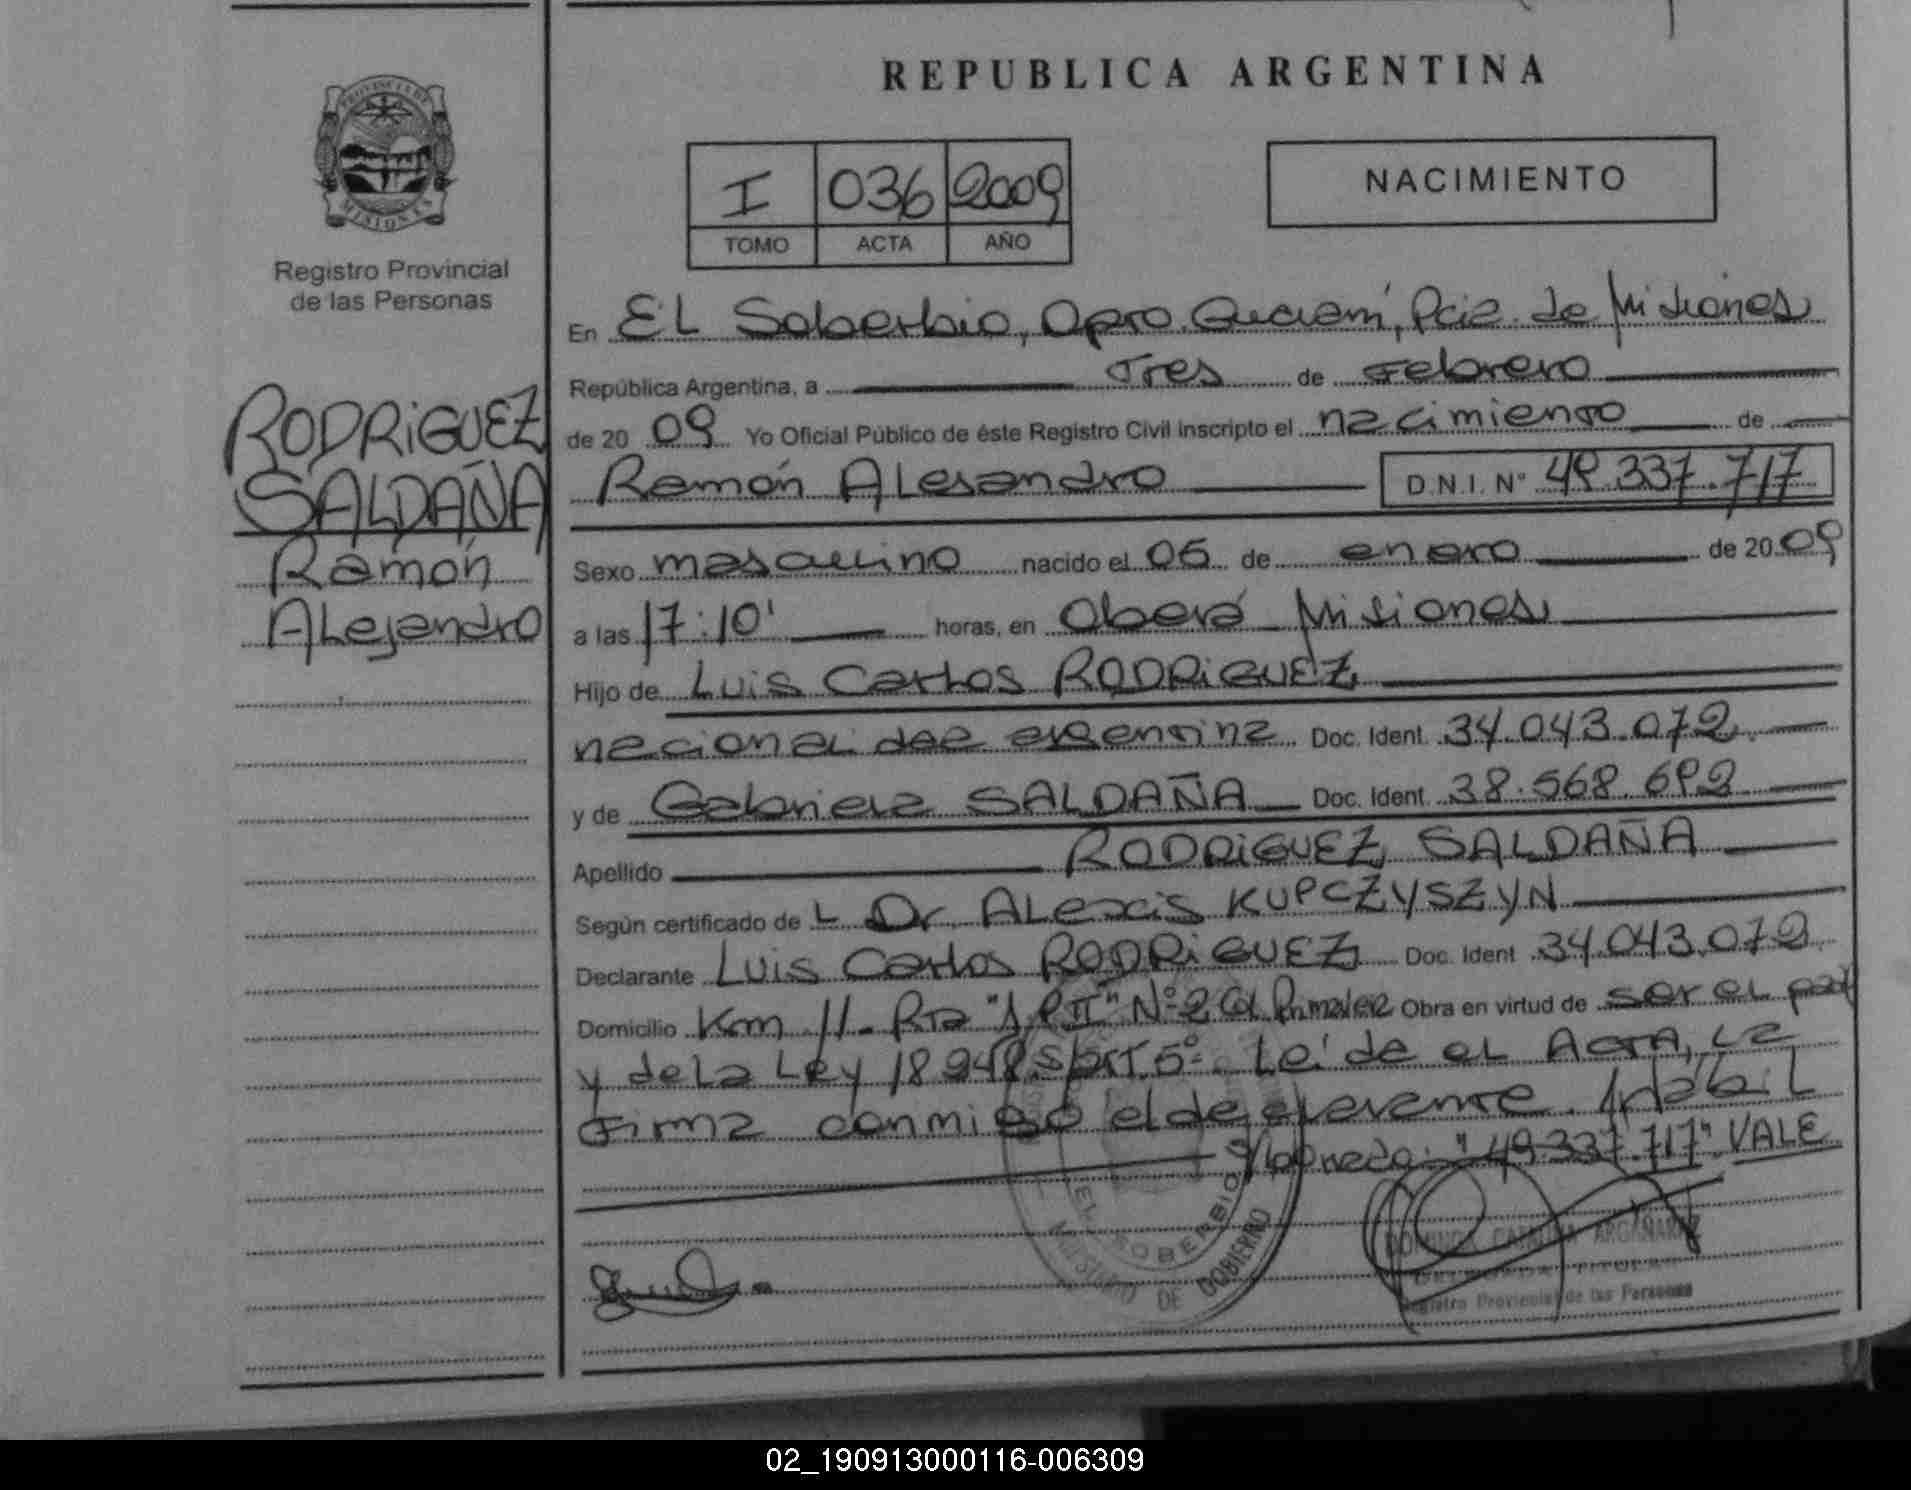 REPUBLICA ARGENTINA
PROVINCIA DE
MISIONES
Registro Provincial
de las Personas
I 036 2009
TOMO ACTA AÑO
NACIMIENTO
RODRiGUEZ
SALDAÑA
Ramón
ALejandro
En EL Soberbio, Dpto. Guaraní, Pcia. de Misiones
República Argentina, a Tres de Febrero
de 20 09 Yo Oficial Público de éste Registro Civil inscripto el nacimiento de
Ramón ALesandro D.N.I. Nº 49.337.717
Sexo masculino nacido el 06 de enero de 20 09
a las 17:10' horas, en Oberá Misiones
Hijo de Luis Carlos RODRiGUEZ
nacionalidad argentina Doc. Ident. 34.043.072
y de Gabriela SALDAÑA Doc. Ident. 38.568.692
Apellido RODRiGUEZ SALDAÑA
Según certificado de L Dr. ALexis KUPCZYSZYN
Declarante Luis Carlos RODRiGUEZ Doc. Ident 34.043.072
Domicilio Km 11 - Rta Nº 2 Obra en virtud de ser eL
y de La Ley 18 248 5º Leída eL ACTA, La
Firma conmigo el declarante. Inábil
"49.337.717". VALE
EL SOBERBIO
MINISTERIO DE GOBIERNO
CATALINA ARGAÑARAZ
DELEGADA TITULAR
Registro Provincial de las Personas
02_190913000116-006309